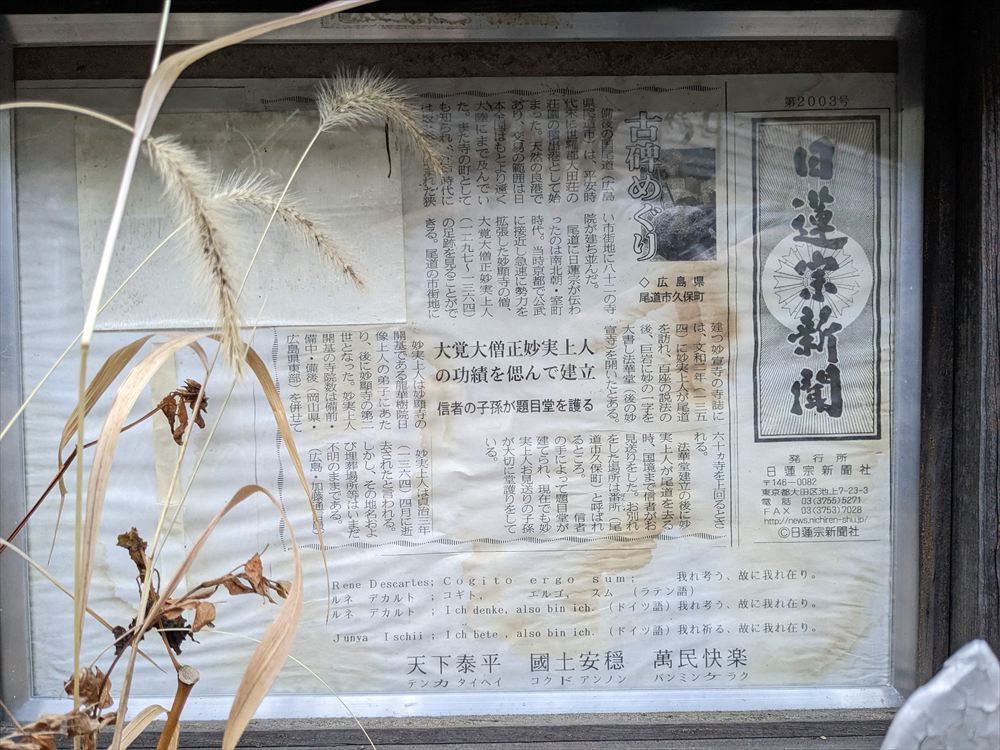 第2003号
日蓮宗新聞
発行所
日蓮宗新聞社
〒146-0082
東京都大田区池上7-23-3
電話 03(3755)5271
FAX 03(3753)7028
http://news.nichiren-shu.jp/
©日蓮宗新聞社
古碑めぐり
◇広島県
尾道市久保町
備後の国尾道(広島
県尾道市)は、平安時
まった。天然の良港で
あり、交易の範囲は日
本全国はもとより遠く
大陸にまで及んでい
た。また寺の町として
も知られ、
い市街地に八十一の寺
院が建ち並んだ。
尾道に日蓮宗が伝わ
ったのは南北朝・室町
時代。当時京都で公武
に接近し急速に勢力を
拡張した妙顕寺の僧、
大覚大僧正妙実上人
(一二九七〜一三六四)
の足跡を見ることがで
きる。尾道の市街地に
建つ妙宣寺の寺誌に
は、文和二年(一三五
四)に妙実上人が尾道
を訪れ、百座の説法の
後、巨岩に妙の一字を
大書し法華堂(後の妙
宣寺)を開いたとある。
大覚大僧正妙実上人
の功績を偲んで建立
信者の子孫が題目堂を護る
妙実上人は妙顕寺の
開基である龍華樹院日
像上人の弟子にあた
り、後に妙顕寺の第二
世となった。妙実上人
開基の寺院数は備前・
備中・備後(岡山県・
広島県東部)を併せて
六十ヵ寺を上回るとさ
れる。
法華堂建立の後に妙
実上人が尾道を去る
時、国境まで信者がお
見送りをした。お別れ
をした場所は番所(尾
道市久保町)と呼ばれ
るところ。信者
の手によって題目堂が
建てられ、現在でも妙
実上人お見送りの子孫
が大切に堂護りをして
いる。
妙実上人は貞治三年
(一三六四)四月に逝
去されたと言われる。
しかし、その地名およ
び埋葬場所等はいまだ
不明のままである。
(広島・加藤通
Rene Descartes; Cogito ergo sum; 我れ考う、故に我れ在り。
ルネ デカルト ; コギト, エルゴ, スム (ラテン語)
ルネ デカルト ; Ich denke, also bin ich. (ドイツ語) 我れ考う、故に我れ在り。
Junya Ischii ; Ich bete, also bin ich. (ドイツ語) 我れ祈る、故に我れ在り。
天下泰平 國土安穏 萬民快楽
テンカタイヘイ コクドアンノン バンミンケラク